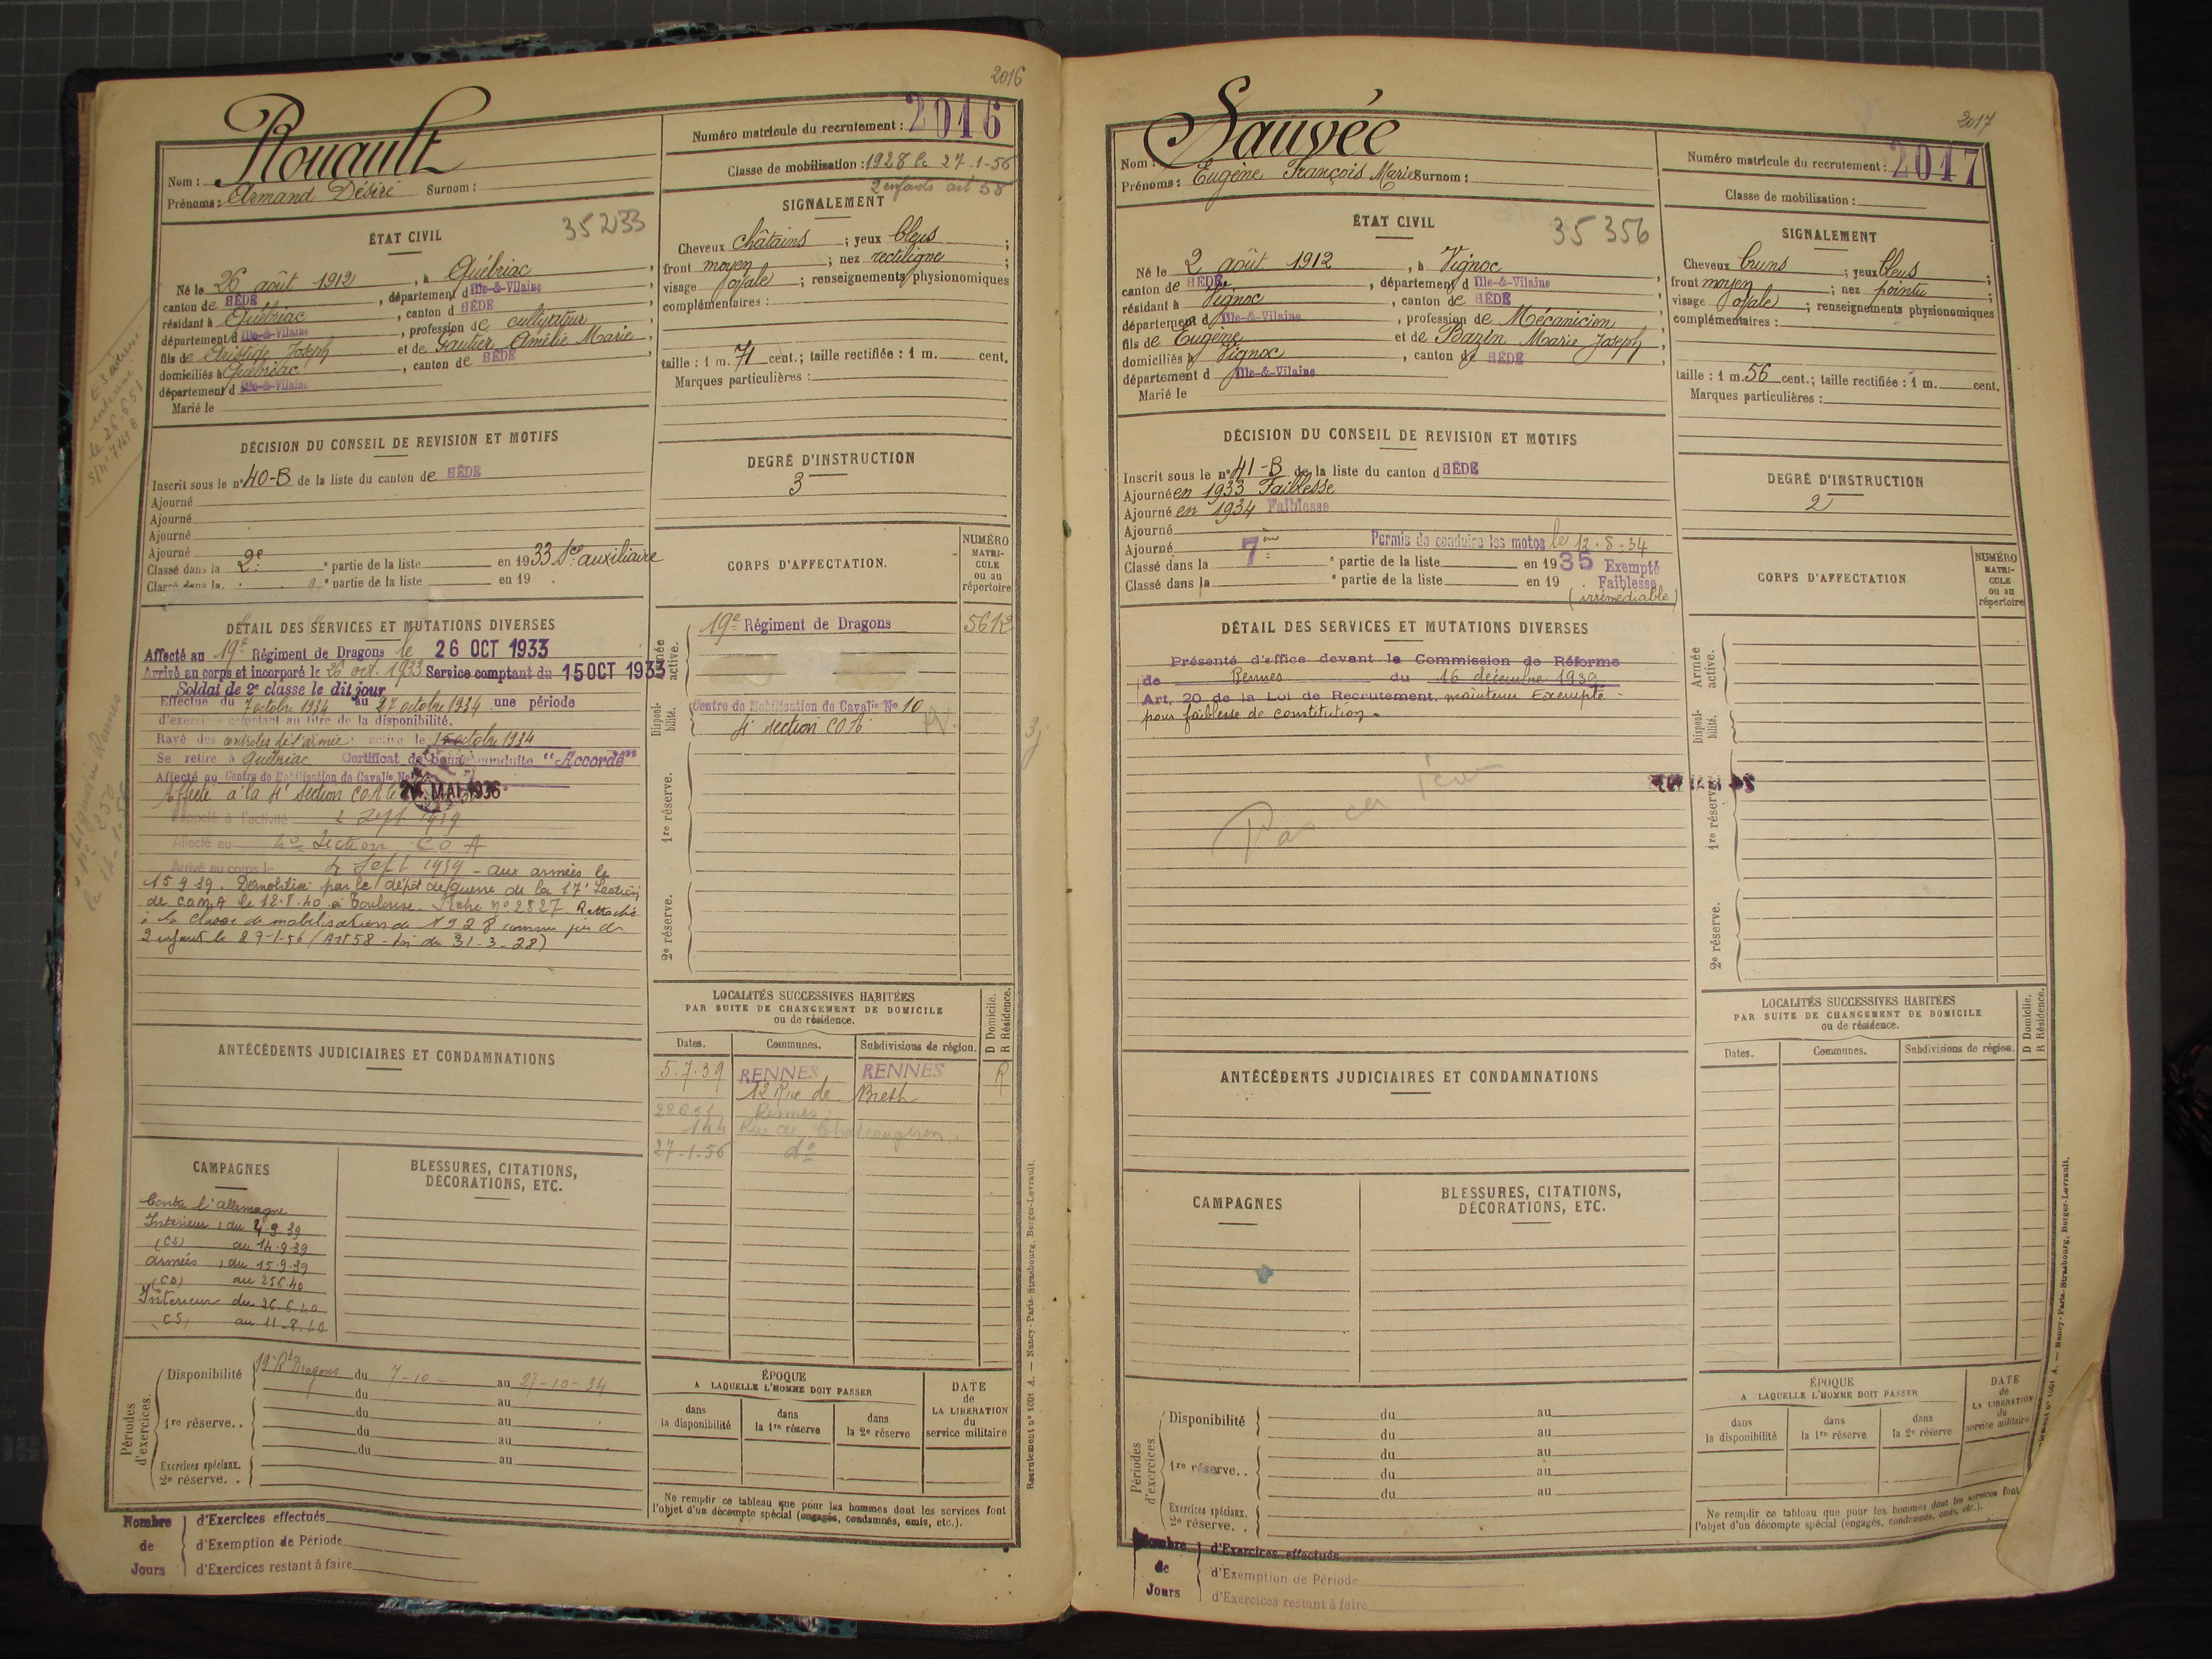 2016
Rouault
Nom :
Prénoms : Armand Désiré Surnom :
Numéro matricule du recrutement : 2016
Classe de mobilisation : 1928 le 27-1-56
2 enfants art 58
ÉTAT CIVIL
35233
Né le 26 août 1912, à Québriac,
canton de HÉDÉ, département d Ille-&-Vilaine
résidant à Québriac, canton d HÉDÉ
département d Ille-&-Vilaine, profession de cultivateur
fils de Aristide Joseph et de Gautier Amélie Marie,
domiciliés à Québriac, canton de HÉDÉ
département d Ille-&-Vilaine
Marié le
SIGNALEMENT
Cheveux châtains ; yeux bleus ;
front moyen ; nez rectiligne ;
visage ovale ; renseignements physionomiques
complémentaires :
taille : 1 m. 71 cent.; taille rectifiée : 1 m. cent.
Marques particulières :
DÉCISION DU CONSEIL DE REVISION ET MOTIFS
Inscrit sous le n° 40-B de la liste du canton de HÉDÉ
Ajourné
Ajourné
Ajourné
Ajourné
Classé dans la 2e partie de la liste en 1933 Sce auxiliaire
Classé dans la partie de la liste en 19
DEGRÉ D'INSTRUCTION
3
DÉTAIL DES SERVICES ET MUTATIONS DIVERSES
Affecté au 19e Régiment de Dragons le 26 OCT 1933
Arrivé au corps et incorporé le 26 oct. 1933 Service comptant du 15 OCT 1933
Soldat de 2e classe le dit jour
Effectue du 7 octobre 1934 au 27 octobre 1934 une période
d'exercices comptant au titre de la disponibilité.
Rayé des contrôles de l'armée active le 15 octobre 1934
Se retire à Québriac Certificat de bonne conduite "Accordé"
Affecté au Centre de Mobilisation de Cavalie No
Affecté à la 4e Section COA le MAI 1936
Rappelé à l'activité 2 Sept 1939
Affecté au 4e Section COA
Arrivé au corps le 4 Sept 1939 - aux armées le
15 9 39. Démobilisé par le dépôt de guerre de la 17e Section
de COMA le 12.8.40 à Toulouse. Fiche n° 2827. Rattaché
à la classe de mobilisation de 1928 comme père de
2 enfants le 27-1-56 (Art 58 - loi du 31-3-28)
CORPS D'AFFECTATION.
NUMÉRO MATRI-CULE ou au répertoire
Armée active.
19e Régiment de Dragons 5612
Disponi-bilité.
Centre de Mobilisation de Cavalie No 10
4e section COA
1re réserve.
2e réserve.
LOCALITÉS SUCCESSIVES HABITÉES
PAR SUITE DE CHANGEMENT DE DOMICILE
ou de résidence.
D Domicile.
R Résidence.
Dates. Communes. Subdivisions de région.
5.7.39 RENNES RENNES R
12 Rue de Breth
Rennes
144 Rue de Chateaugiron
27-1-56 do
ANTÉCÉDENTS JUDICIAIRES ET CONDAMNATIONS
CAMPAGNES
Contre l'allemagne
Intérieur, du 4.9.39
(CS) au 14.9.39
armées, du 15.9.39
(CD) au 25 6 40
Intérieur du 26.6.40
(CS) au 11.8.40
BLESSURES, CITATIONS,
DÉCORATIONS, ETC.
Périodes d'exercices.
Disponibilité 19e Rt Dragons du 7-10 au 27-10-34
du au
1re réserve.. du au
du au
du au
Exercices spéciaux.
2e réserve. .
ÉPOQUE
A LAQUELLE L'HOMME DOIT PASSER
dans la disponibilité
dans la 1re réserve
dans la 2e réserve
DATE de LA LIBÉRATION du service militaire
Ne remplir ce tableau que pour les hommes dont les services font
l'objet d'un décompte spécial (engagés, condamnés, omis, etc.).
Nombre de Jours
d'Exercices effectués
d'Exemption de Période
d'Exercices restant à faire
Recrutement n° 1001 A. — Nancy-Paris-Strasbourg, Berger-Levrault.
2017
Sauvée
Nom :
Prénoms : Eugène François Marie Surnom :
Numéro matricule du recrutement : 2017
Classe de mobilisation :
ÉTAT CIVIL
35356
Né le 2 août 1912, à Vignoc,
canton de HÉDÉ, département d Ille-&-Vilaine
résidant à Vignoc, canton de HÉDÉ
département d Ille-&-Vilaine, profession de Mécanicien
fils de Eugène et de Bazin Marie Joseph,
domiciliés à Vignoc, canton de HÉDÉ
département d Ille-&-Vilaine
Marié le
SIGNALEMENT
Cheveux bruns ; yeux bleus ;
front moyen ; nez pointu ;
visage ovale ; renseignements physionomiques
complémentaires :
taille : 1 m. 56 cent.; taille rectifiée : 1 m. cent.
Marques particulières :
DÉCISION DU CONSEIL DE REVISION ET MOTIFS
Inscrit sous le n° 41-B de la liste du canton d HÉDÉ
Ajourné en 1933 Faiblesse
Ajourné en 1934 Faiblesse
Ajourné
Ajourné Permis de conduire les motos le 12.8.34
Classé dans la 7ème partie de la liste en 1935 Exempté
Classé dans la partie de la liste en 19 Faiblesse
(irrémédiable)
DEGRÉ D'INSTRUCTION
2
DÉTAIL DES SERVICES ET MUTATIONS DIVERSES
Présenté d'office devant la Commission de Réforme
de Rennes du 16 décembre 1939
Art. 20 de la Loi de Recrutement, maintenu Exempté
pour faiblesse de constitution.
CORPS D'AFFECTATION
NUMÉRO MATRI-CULE ou au répertoire
Armée active.
Disponi-bilité.
1re réserve.
2e réserve.
LOCALITÉS SUCCESSIVES HABITÉES
PAR SUITE DE CHANGEMENT DE DOMICILE
ou de résidence.
D Domicile.
R Résidence.
Dates. Communes. Subdivisions de région.
ANTÉCÉDENTS JUDICIAIRES ET CONDAMNATIONS
CAMPAGNES
BLESSURES, CITATIONS,
DÉCORATIONS, ETC.
Périodes d'exercices.
Disponibilité du au
du au
1re réserve.. du au
du au
du au
Exercices spéciaux.
2e réserve. .
ÉPOQUE
A LAQUELLE L'HOMME DOIT PASSER
dans la disponibilité
dans la 1re réserve
dans la 2e réserve
DATE de LA LIBÉRATION du service militaire
Ne remplir ce tableau que pour les hommes dont les services font
l'objet d'un décompte spécial (engagés, condamnés, omis, etc.).
Nombre de Jours
d'Exercices effectués
d'Exemption de Période
d'Exercices restant à faire
1001 A. — Nancy-Paris-Strasbourg, Berger-Levrault.